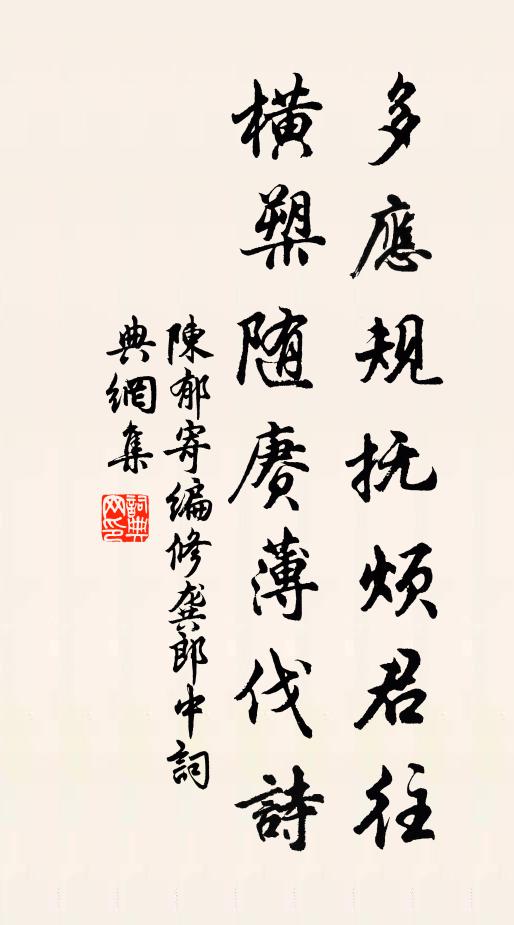 多應規抚煩君往
橫槊随賡薄伐詩
陳郁寄編修龚郎中詞
典網集
詞典網印